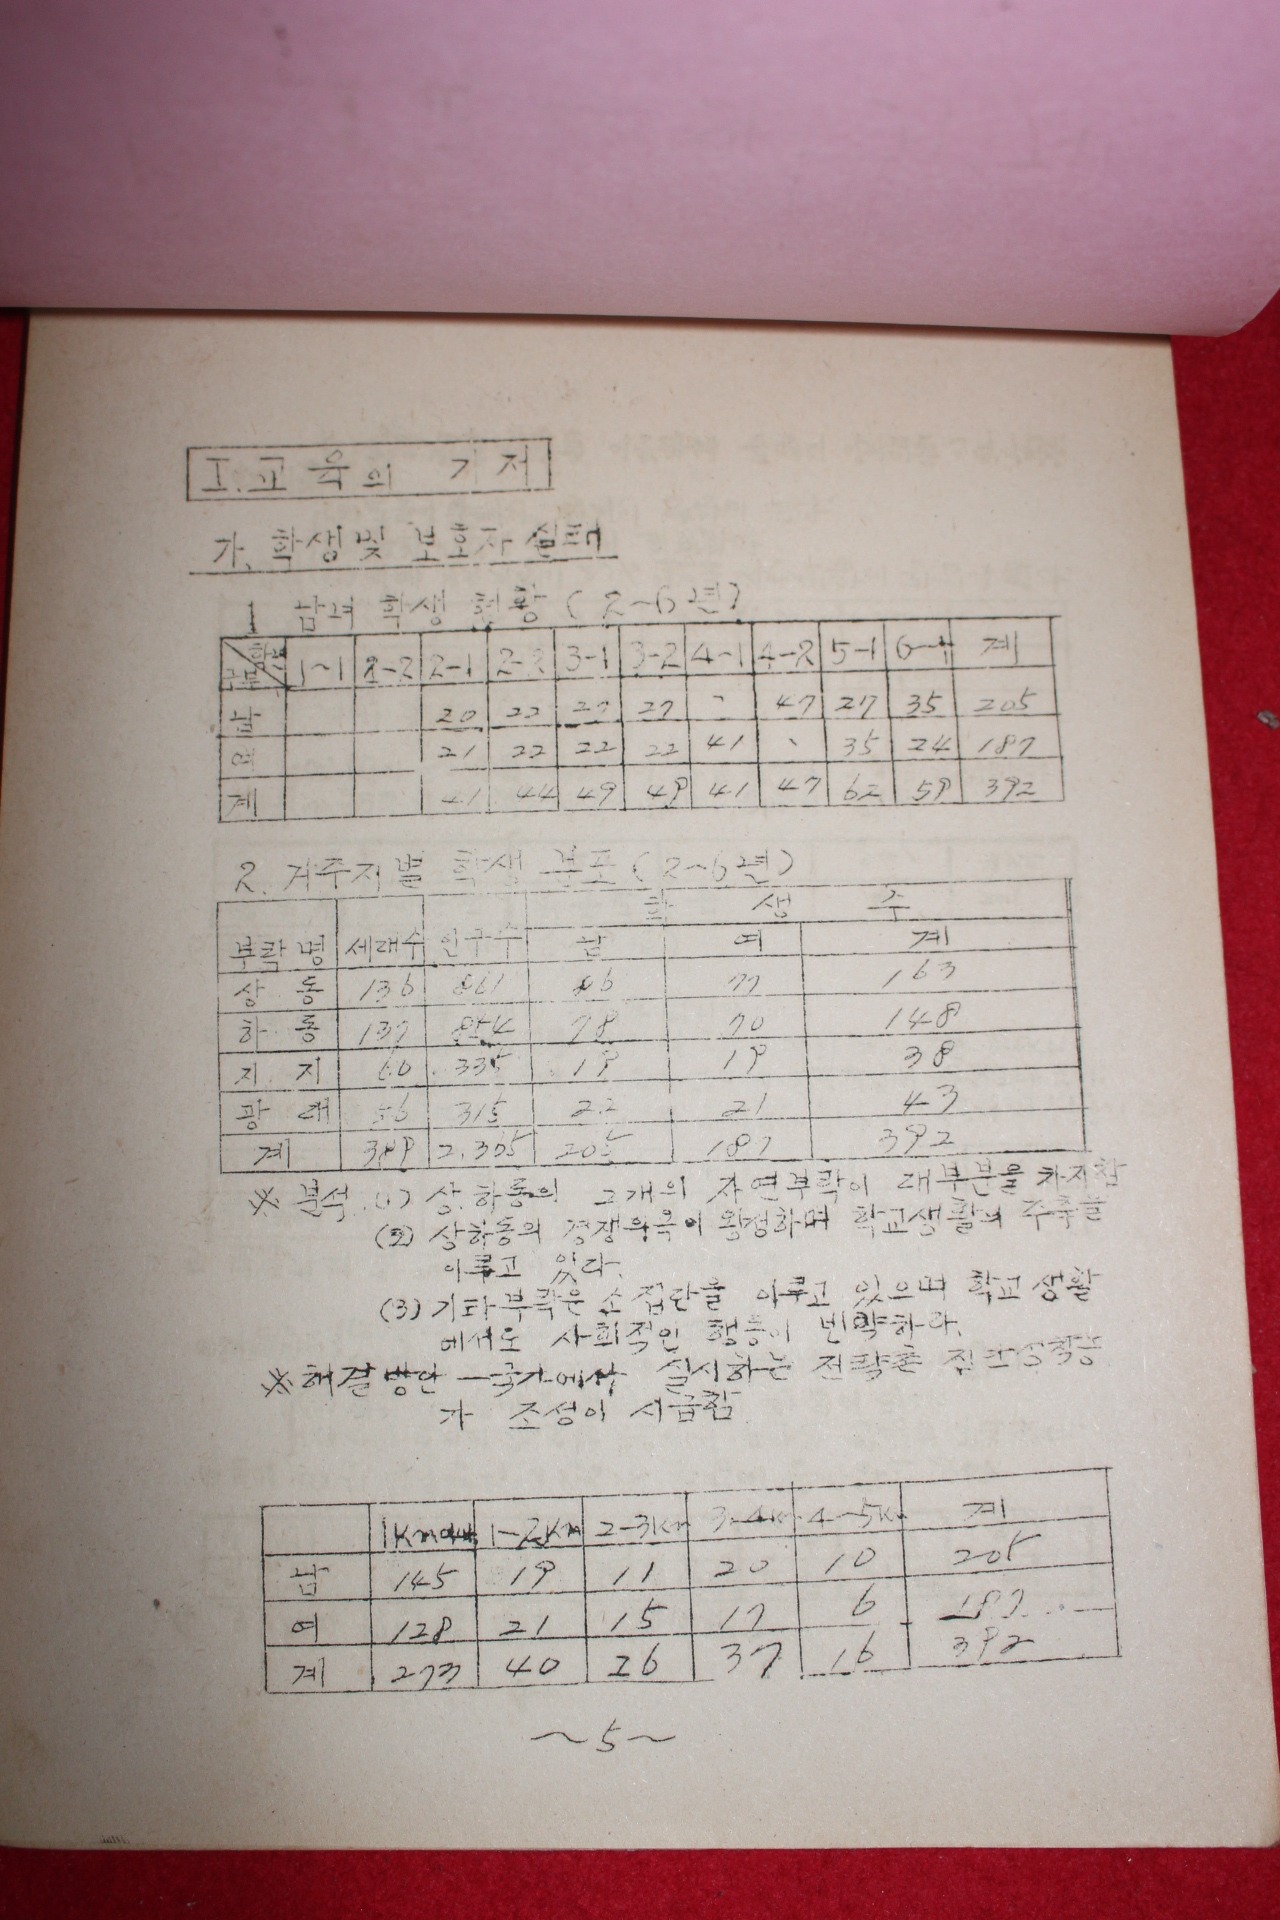 I. 교육의 기저
가. 학생 및 보호자 실태
1 남녀 학생 현황 (2~6년)
1-1 2-2 2-1 2-2 3-1 3-2 4-1 4-2 5-1 6-1 계
남 20 22 27 27 - 47 27 35 205
여 21 22 22 22 41 - 35 24 187
계 41 44 49 49 41 47 62 59 392
2. 거주지별 학생 분포 (2~6년)
학 생 수
부락명 세대수 인구수 남 여 계
상 동 136 861 86 77 163
하 동 137 70 148
78
지 지 60 335 19 19 38
광 대 56 315 22 21 43
계 389 2,305 205 187 392
※ 분석 (1) 상.하동의 2개의 자연부락이 대부분을 차지함
(2) 상하동의 경쟁의욕이 왕성하며 학교생활의 주축을
이루고 있다.
(3) 기타부락은 소집단을 이루고 있으며 학교생활
에서도 사회적인 행동이 빈약하다.
※ 해결방안 - 국가에서 실시하는 전략촌 집단
가 조성이 시급함
1Km 1-2Km 2-3Km 3-4Km 4-5Km 계
남 145 19 11 20 10 205
여 128 21 15 17 6 187
계 273 40 26 37 16 392
~5~